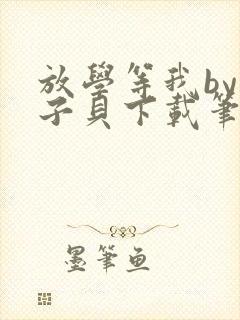 放學等我by
子貝下載筆
墨筆魚